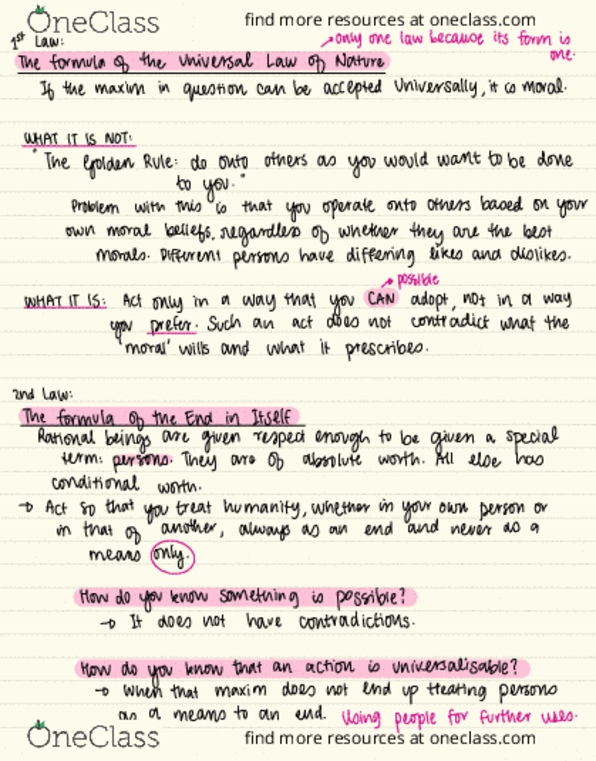 OneClass
find more resources at oneclass.com
1st Law:
only one law because its form is
one.
The formula of the Universal Law of Nature
If the maxim in question can be accepted Universally, it is moral.
WHAT IT IS NOT:
"The Golden Rule: do onto others as you would want to be done
to you."
Problem with this is that you operate onto others based on your
own moral beliefs, regardless of whether they are the best
morals. Different persons have differing likes and dislikes.
possible
WHAT IT IS: Act only in a way that you CAN adopt, not in a way
you prefer. Such an act does not contradict what the
'moral' wills and what it prescribes.
2nd Law:
The formula of the End in Itself
Rational beings are given respect enough to be given a special
term: persons. They are of absolute worth. All else has
conditional worth.
→ Act so that you treat humanity, whether in your own person or
in that of another, always as an end and never as a
means only.
How do you know something is possible?
→ It does not have contradictions.
How do you know that an action is universalisable?
→ When that maxim does not end up treating persons
as a means to an end. Using people for further uses.
OneClass
find more resources at oneclass.com